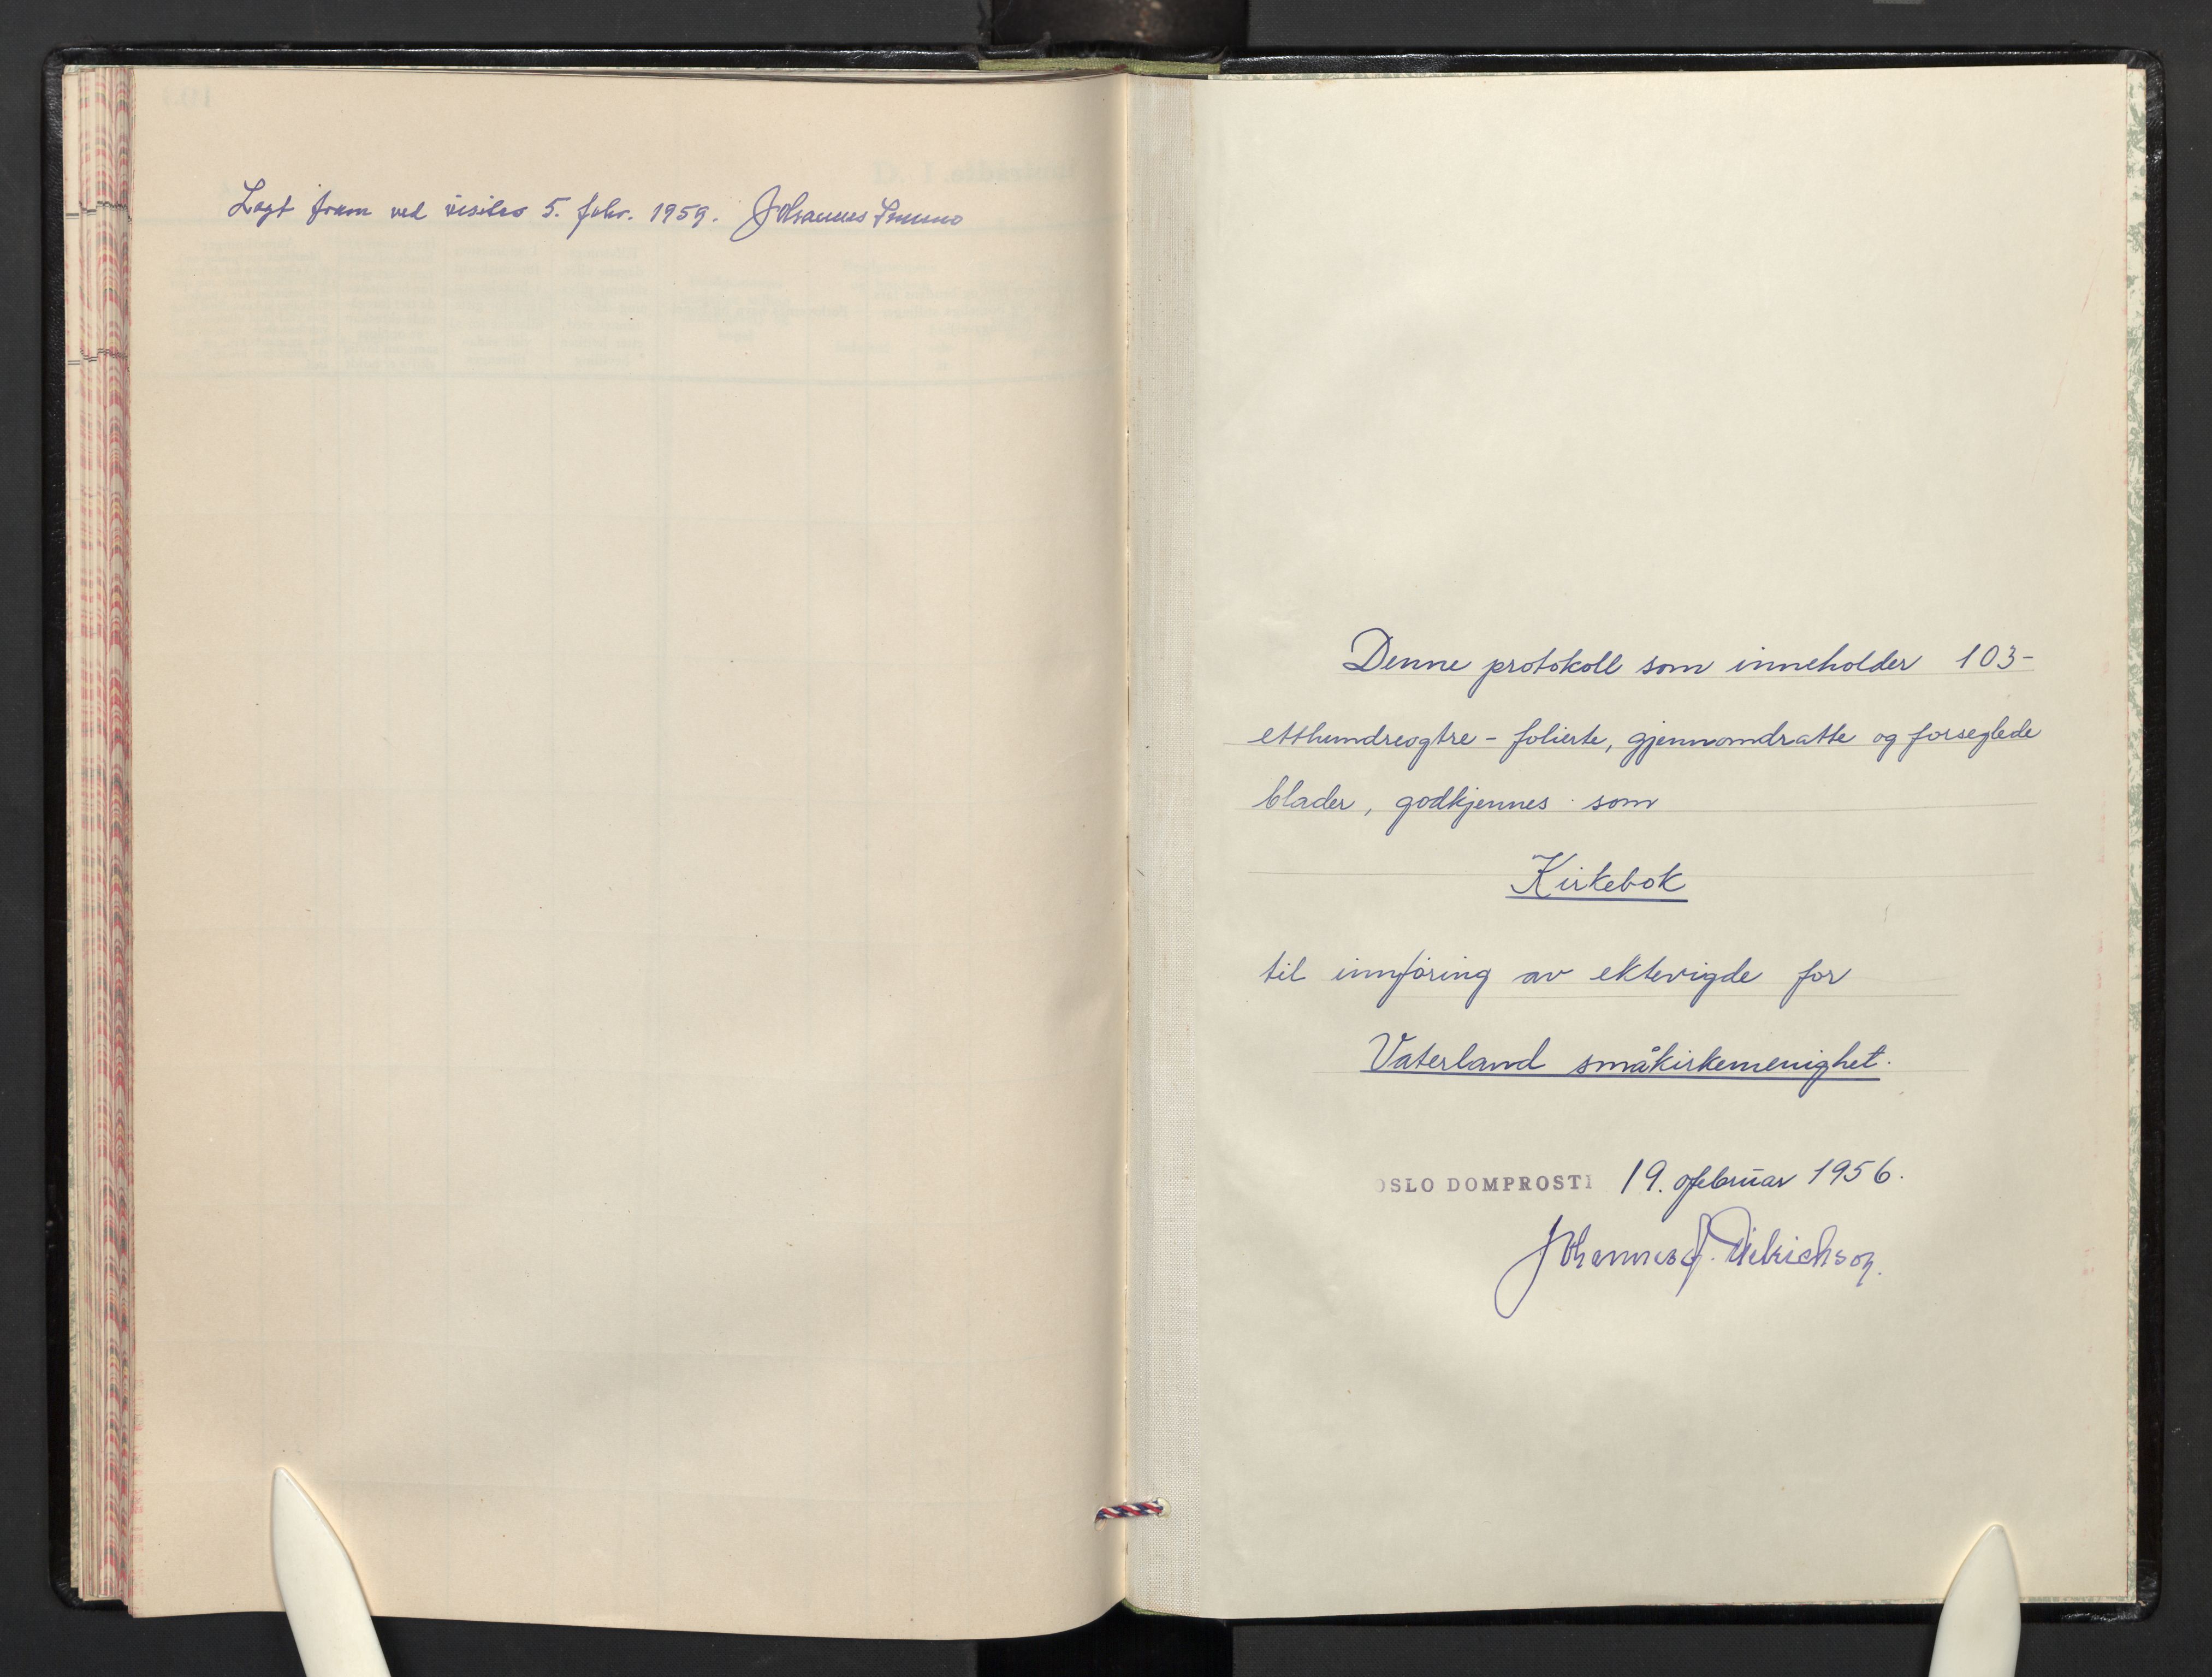 Lagt fram ved visitas 5. febr. 1959. Johannes Smemo
Denne protokoll som inneholder 103-
etthundreogtre - folierte, gjennomdratte og forseglede
blader, godkjennes som
Kirkebok
til innføring av ektevigde for
Vaterland småkirkemenighet.
OSLO DOMPROSTI 19. februar 1956.
Johannes J.